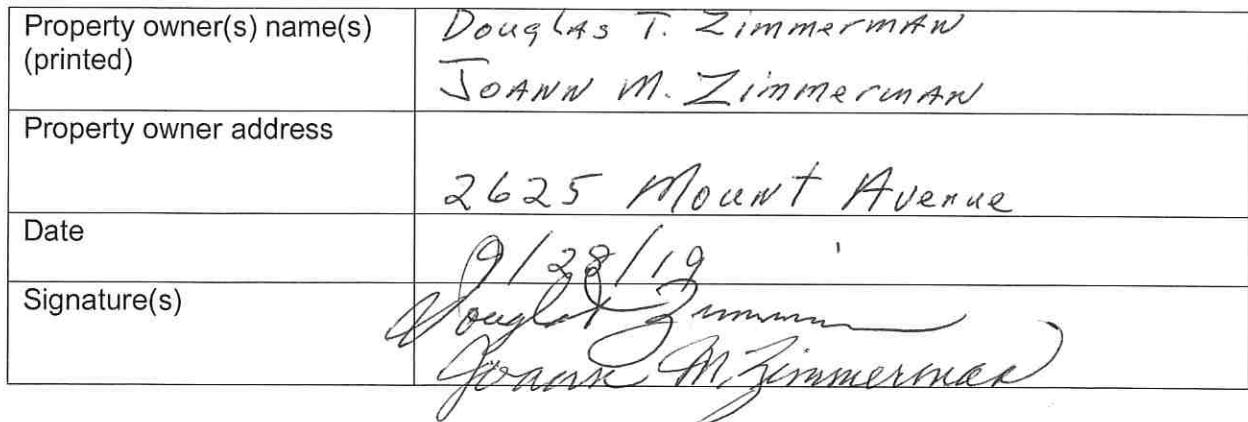 Property owner(s) name(s) Douglas T. Zimmerman
(printed) Joann M. Zimmerman
Property owner address
2625 Mount Avenue
Date 9/28/19
Signature(s) Douglas T Zimmerman
Joann M. Zimmerman